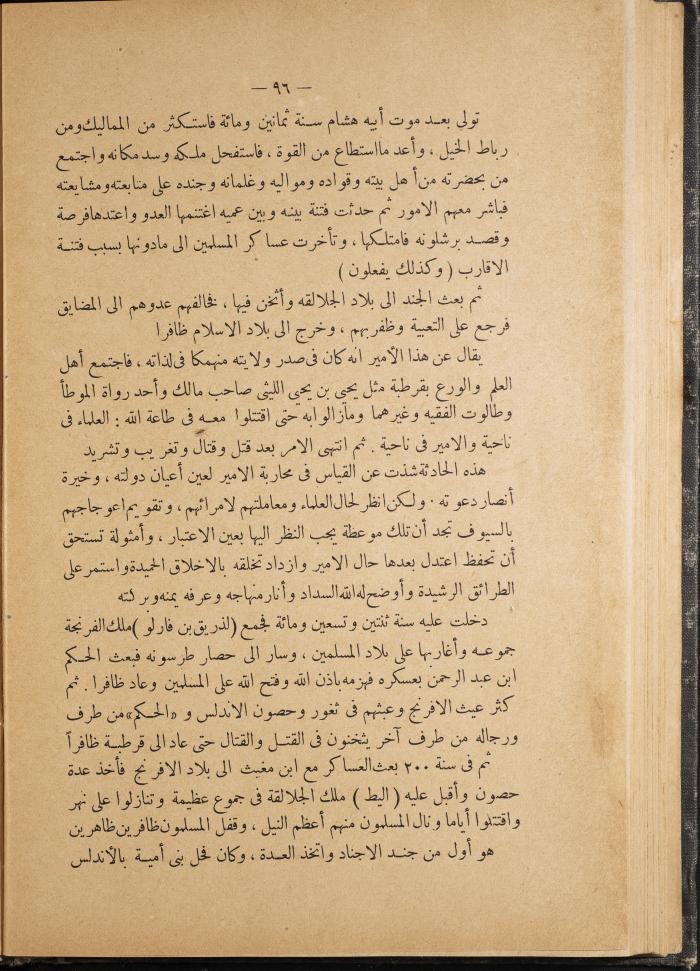 — ٩٦ —
تولى بعد موت أبيه هشام سنة ثمانين ومائة فاستكثر من المماليك ومن
رباط الخيل ، وأعد ما استطاع من القوة ، فاستفحل ملكه وسد مكانه واجتمع
من بحضرته من أهل بيته وقواده ومواليه وغلمانه وجنده على متابعته ومشايعته
فباشر معهم الامور ثم حدثت فتنة بينه وبين عميه اغتنمها العدو واعتدها فرصة
وقصد برشلونه فامتلكها ، وتأخرت عساكر المسلمين الى مادونها بسبب فتنة
الاقارب ( وكذلك يفعلون )
ثم بعث الجند الى بلاد الجلالقه وأثخن فيها ، فخالفهم عدوهم الى المضايق
فرجع على التعبية وظفر بهم ، وخرج الى بلاد الاسلام ظافرا
يقال عن هذا الأمير انه كان فى صدر ولايته منهمكا فى لذاته ، فاجتمع أهل
العلم والورع بقرطبة مثل يحيى بن يحيى الليثى صاحب مالك وأحد رواة الموطأ
وطالوت الفقيه وغيرهما ومازالوا به حتى اقتتلوا معه فى طاعة الله : العلماء فى
ناحية والامير فى ناحية . ثم انتهى الامر بعد قتل وقتال وتغريب وتشريد
هذه الحادثة شذت عن القياس فى محاربة الامير لعين أعيان دولته ، وخيرة
أنصار دعوته . ولكن انظر لحال العلماء ومعاملتهم لامرائهم ، وتقويم اعوجاجهم
بالسيوف تجد أن تلك موعظة يجب النظر اليها بعين الاعتبار ، وأمثولة تستحق
أن تحفظ اعتدل بعدها حال الامير وازداد تخلقه بالاخلاق الحميدة واستمر على
الطرائق الرشيدة وأوضح له الله السداد وأنار منهاجه وعرفه يمنه وبركته
دخلت عليه سنة ثنتين وتسعين ومائة فجمع (لذريق بن فارلو ) ملك الفرنجة
جموعه وأغار بها على بلاد المسلمين ، وسار الى حصار طرسونه فبعث الحكم
ابن عبد الرحمن بعسكره فهزمه باذن الله وفتح الله على المسلمين وعاد ظافرا . ثم
كثر عيث الافرنج وعبثهم فى ثغور وحصون الاندلس و «الحكم» من طرف
ورجاله من طرف آخر يثخنون فى القتل والقتال حتى عاد الى قرطبة ظافراً
ثم فى سنة ٢٠٠ بعث العساكر مع ابن مغيث الى بلاد الافرنج فأخذ عدة
حصون وأقبل عليه ( اليط ) ملك الجلالقة فى جموع عظيمة وتنازلوا على نهر
واقتتلوا أياما ونال المسلمون منهم أعظم النيل ، وقفل المسلمون ظافرين ظاهرين
هو أول من جند الاجناد واتخذ العدة ، وكان فحل بنى أمية بالأندلس